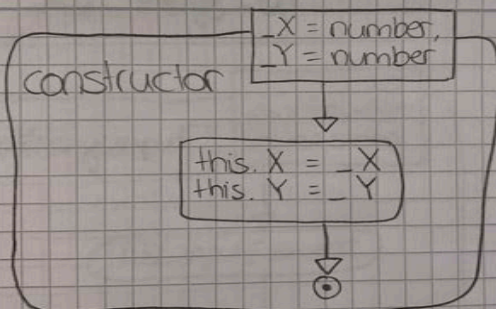 _X = number,
_Y = number
constructor
this.X = _X
this.Y = _Y